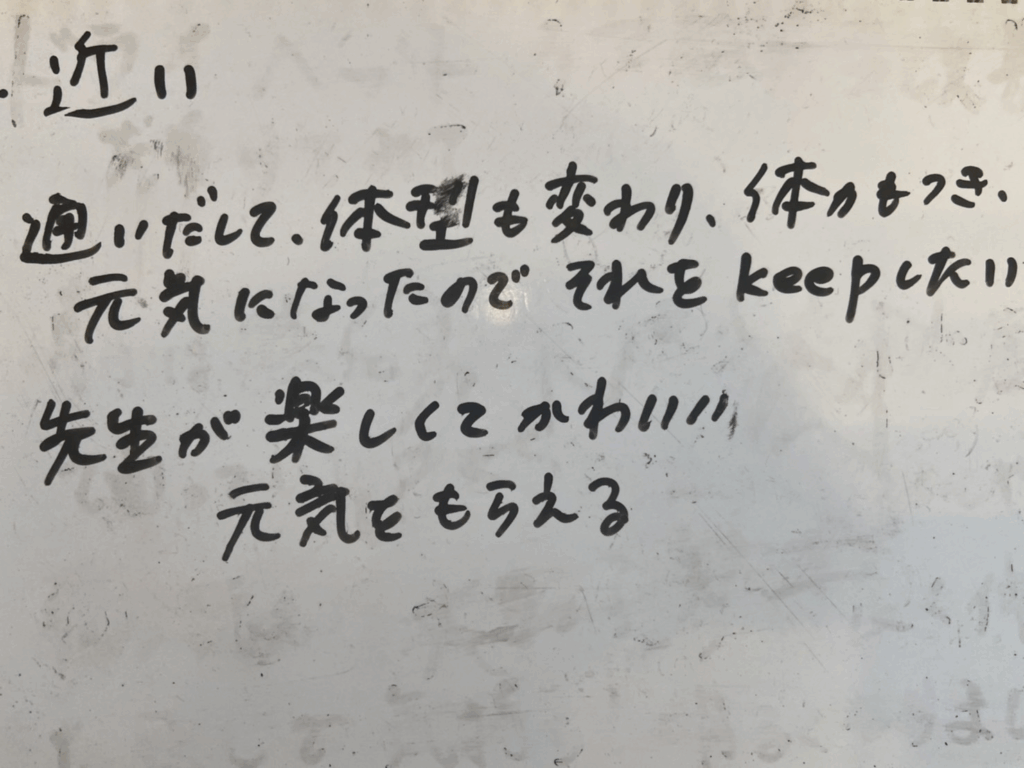 ・近い
通いだして、体型も変わり、体力もつき、
元気になったので それをkeepしたい
先生が楽しくてかわいい
元気をもらえる